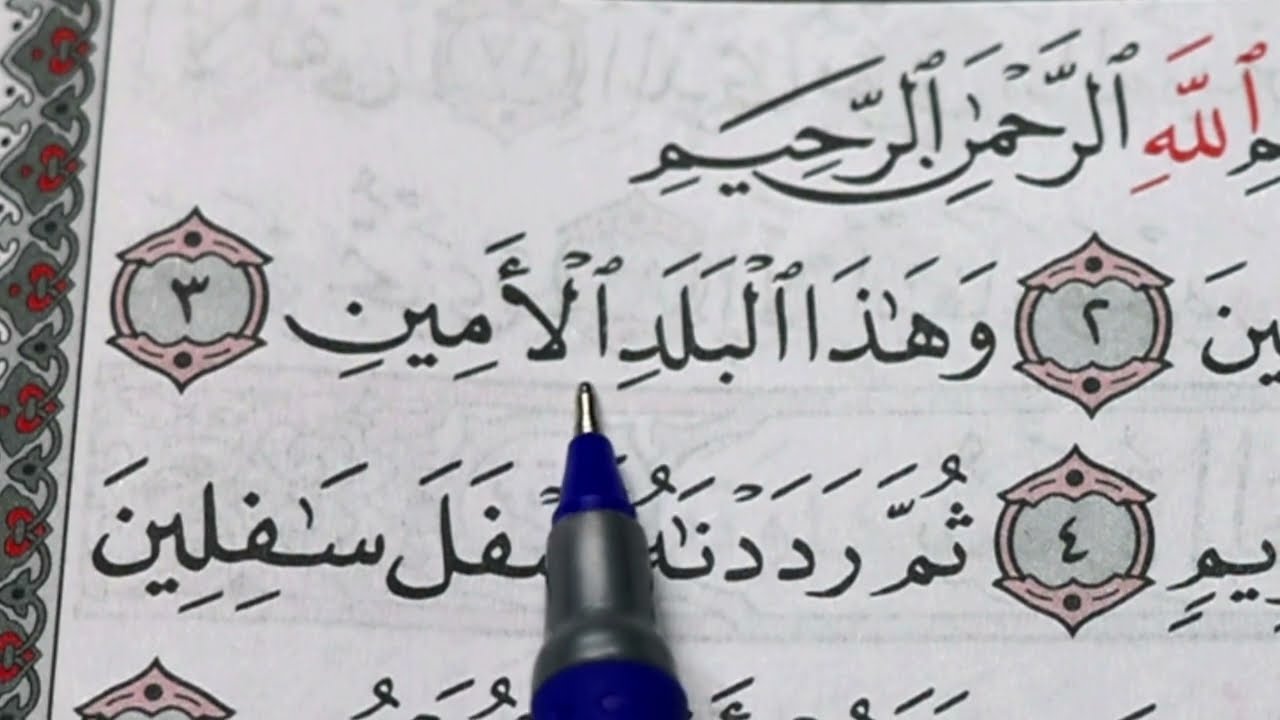 ٱللَّهِ ٱلرَّحْمَٰنِ ٱلرَّحِيمِ
٢ وَهَٰذَا ٱلْبَلَدِ ٱلْأَمِينِ ٣
٤ ثُمَّ رَدَدْنَٰهُ سَٰفِلِينَ